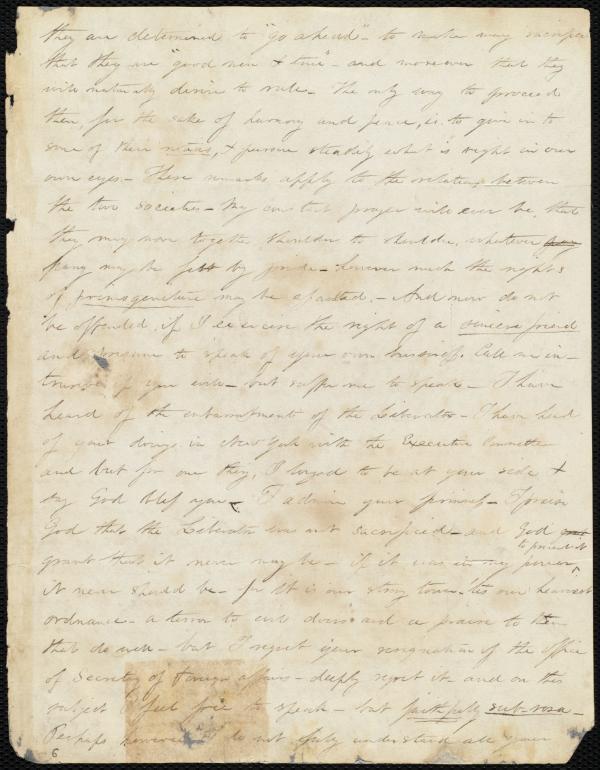 they are determined to "go ahead" - to make any sacrifice
that they are "good men & true" - and moreover that they
will naturally desire to rule - The only way to proceed
then, for the sake of harmony and peace, is to give in to
some of their notions, & pursue steadily what is right in our
own eyes - These remarks apply to the relations between
the two societies - My constant prayer will ever be, that
they may move together, shoulder to shoulder, whatever
pang may be felt by pride - however much the rights
of primogeniture may be - And now do not
be offended, if I exercise the right of a sincere friend
and presume to speak of your own business. Call me in-
truder if you will - but suffer me to speak - I have
heard of the embarrassment of the Liberator - I have heard
of your doings in New York with the Executive Committee
and but for one thing, I longed to be at your side &
say God bless you - I admire your firmness -
God that the Liberator was not sacrificed - and God
grant that it never may be - if it was in my power to prevent it
it never should be - for it is our strong tower - 'tis our heaviest
ordnance - a terror to evil doers and a praise to them
that do well - but I regret your resignation of the office
of Secretary of Foreign affairs - deeply regret it - and on this
subject I feel free to speak - but faithfully sub-rosa -
Perhaps however I do not fully understand all your
6